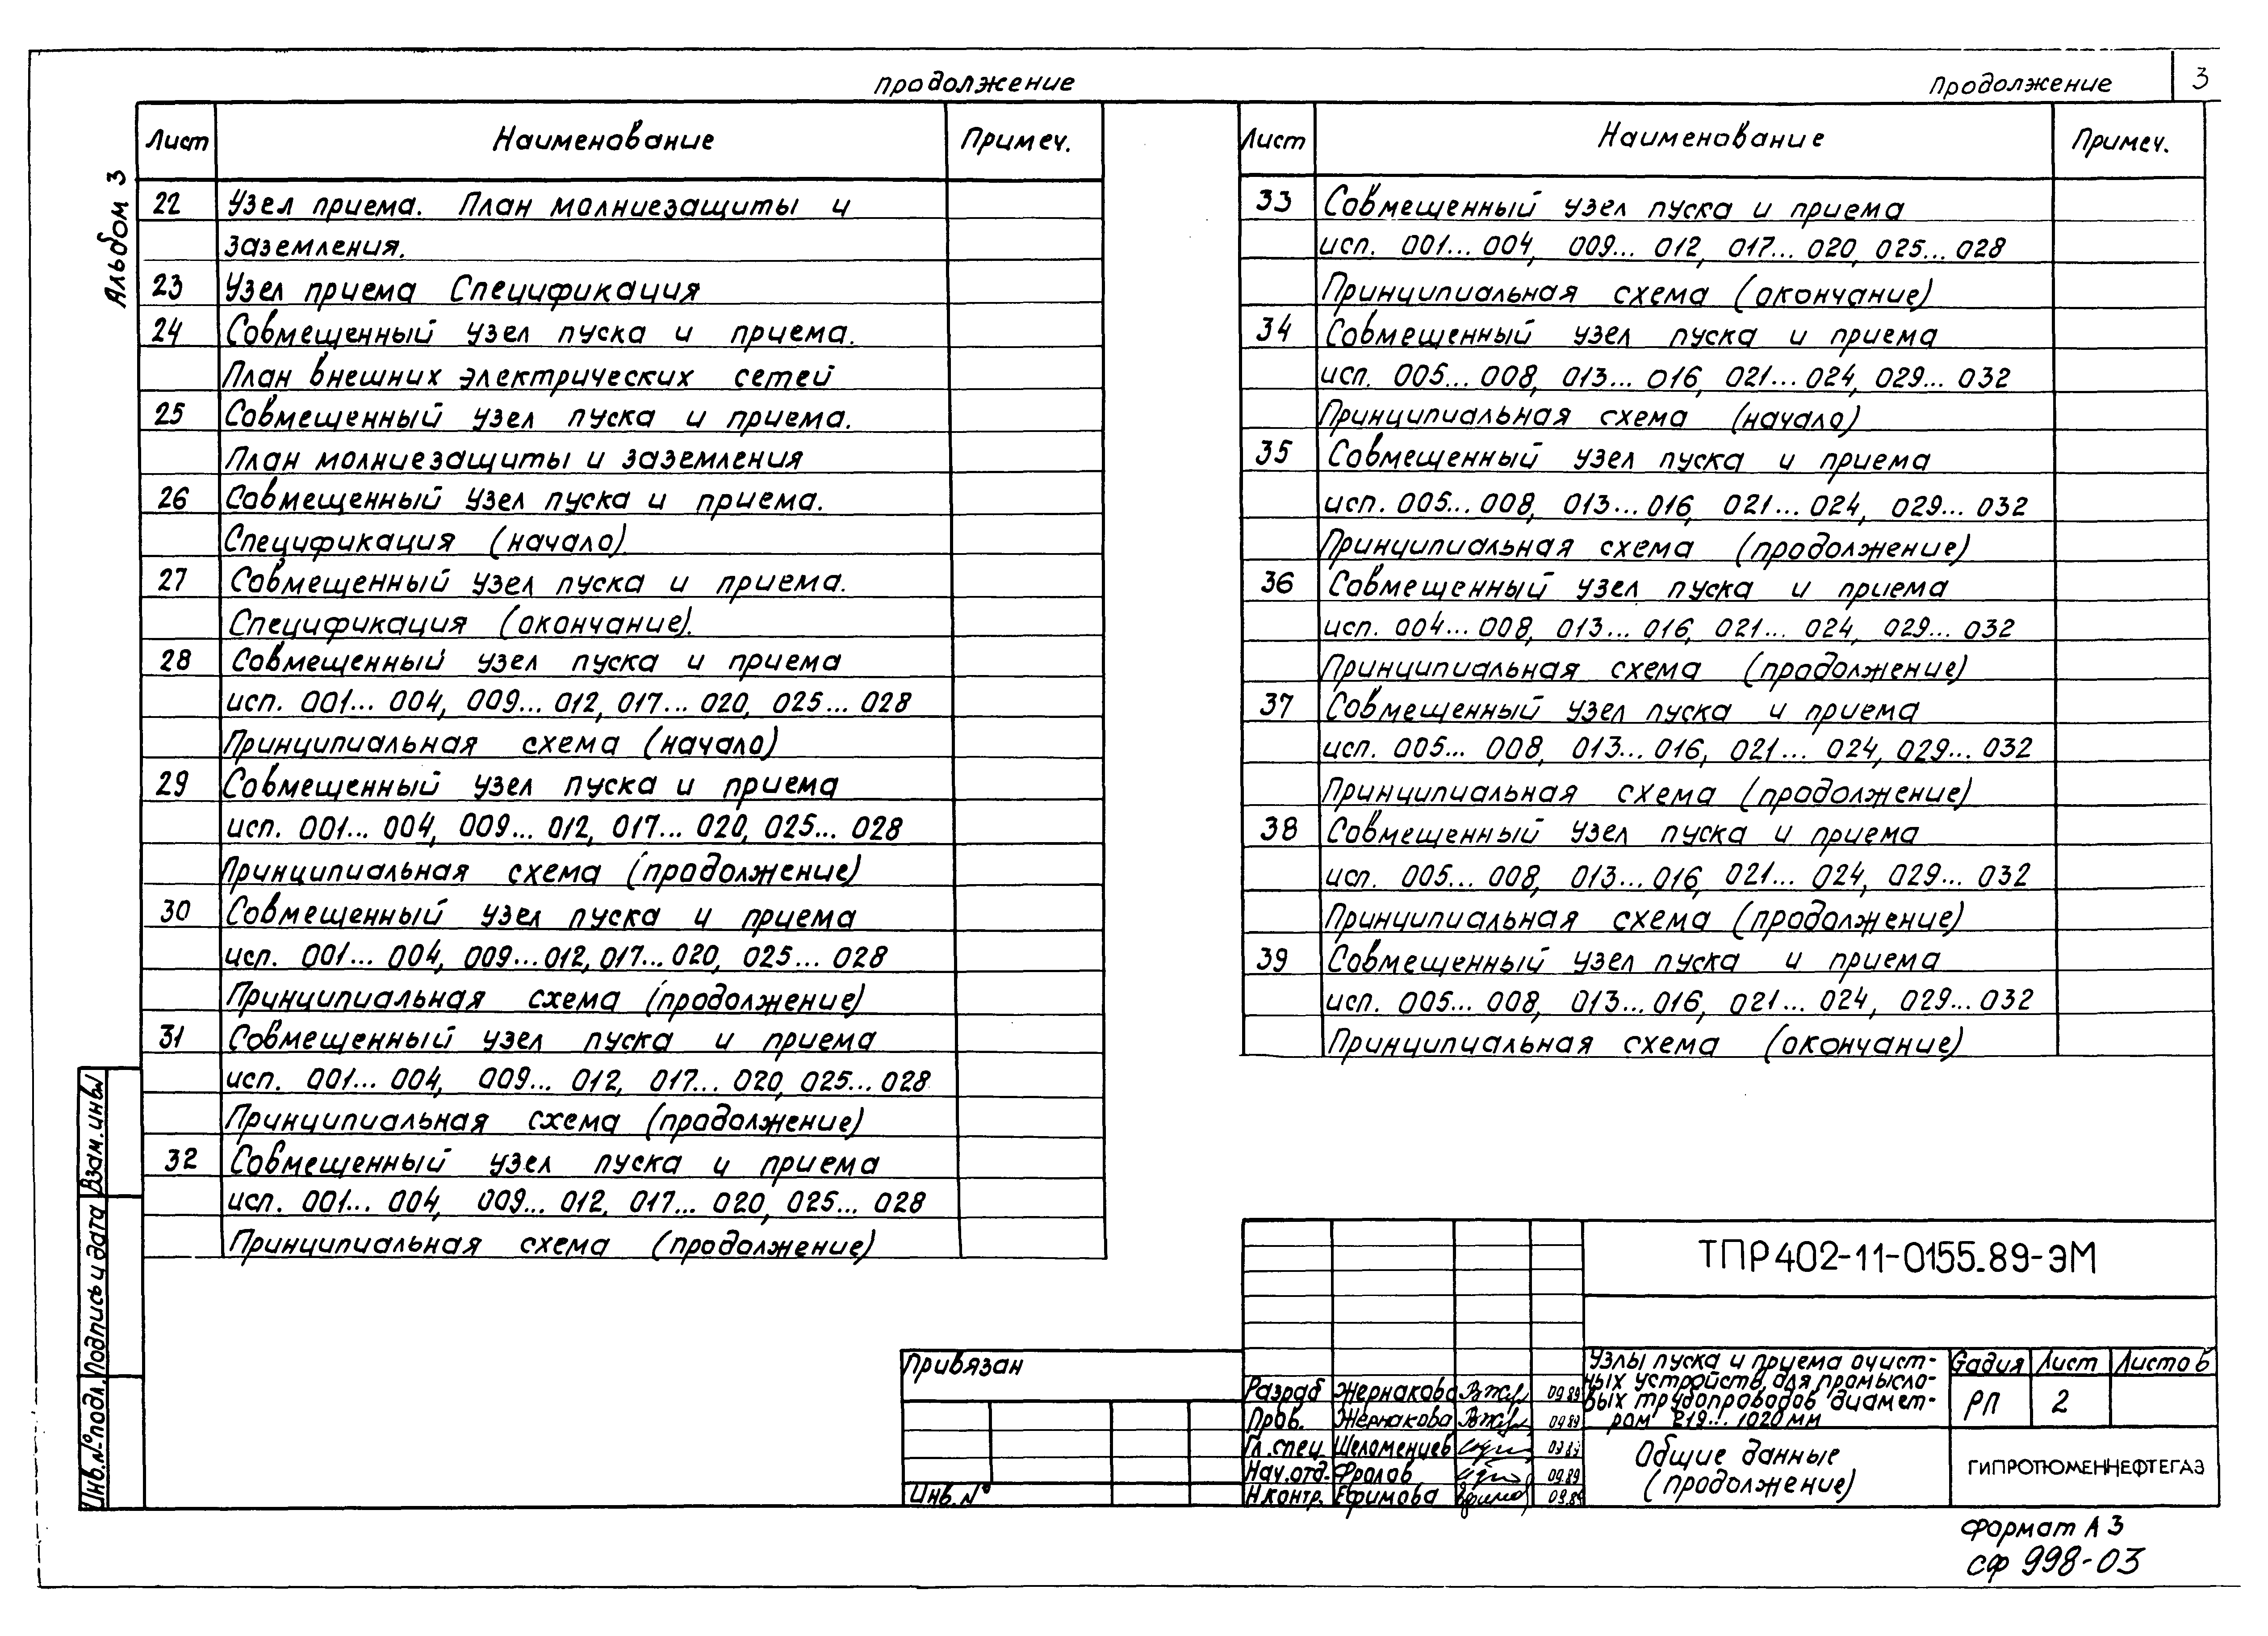 Продолжение
Продолжение
3
Альбом 3
Лист Наименование Примеч.
22 Узел приема. План молниезащиты и
заземления.
23 Узел приема Спецификация
24 Совмещенный узел пуска и приема.
План внешних электрических сетей
25 Совмещенный узел пуска и приема.
План молниезащиты и заземления
26 Совмещенный узел пуска и приема.
Спецификация (начало)
27 Совмещенный узел пуска и приема.
Спецификация (окончание).
28 Совмещенный узел пуска и приема
исп. 001... 004, 009... 012, 017... 020, 025... 028
Принципиальная схема (начало)
29 Совмещенный узел пуска и приема
исп. 001... 004, 009... 012, 017... 020, 025... 028
Принципиальная схема (продолжение)
30 Совмещенный узел пуска и приема
исп. 001... 004, 009... 012, 017... 020, 025... 028
Принципиальная схема (продолжение)
31 Совмещенный узел пуска и приема
исп. 001... 004, 009... 012, 017... 020, 025... 028
Принципиальная схема (продолжение)
32 Совмещенный узел пуска и приема
исп. 001... 004, 009... 012, 017... 020, 025... 028
Принципиальная схема (продолжение)
Лист Наименование Примеч.
33 Совмещенный узел пуска и приема
исп. 001... 004, 009... 012, 017... 020, 025... 028
Принципиальная схема (окончание)
34 Совмещенный узел пуска и приема
исп. 005... 008, 013... 016, 021... 024, 029... 032
Принципиальная схема (начало)
35 Совмещенный узел пуска и приема
исп. 005... 008, 013... 016, 021... 024, 029... 032
Принципиальная схема (продолжение)
36 Совмещенный узел пуска и приема
исп. 004... 008, 013... 016, 021... 024, 029... 032
Принципиальная схема (продолжение)
37 Совмещенный узел пуска и приема
исп. 005... 008, 013... 016, 021... 024, 029... 032
Принципиальная схема (продолжение)
38 Совмещенный узел пуска и приема
исп. 005... 008, 013... 016, 021... 024, 029... 032
Принципиальная схема (продолжение)
39 Совмещенный узел пуска и приема
исп. 005... 008, 013... 016, 021... 024, 029... 032
Принципиальная схема (окончание)
Взам. инв№
Подпись и дата
Инв. № подл.
Привязан
Инв. №
ТПР 402-11-0155.89-ЭМ
Разраб Жернакова 09.89
Пров. Жернакова 09.89
Гл. спец Шеломенцев
Нач. отд. Фролов 09.89
Н.контр. Ефимова 09.89
Узлы пуска и приема очист-
ных устройств для промысло-
вых трубопроводов диамет-
ром 219... 1020 мм
Стадия Лист Листов
РП 2
Общие данные
(продолжение)
ГИПРОТЮМЕННЕФТЕГАЗ
Формат А3
СФ 998-03